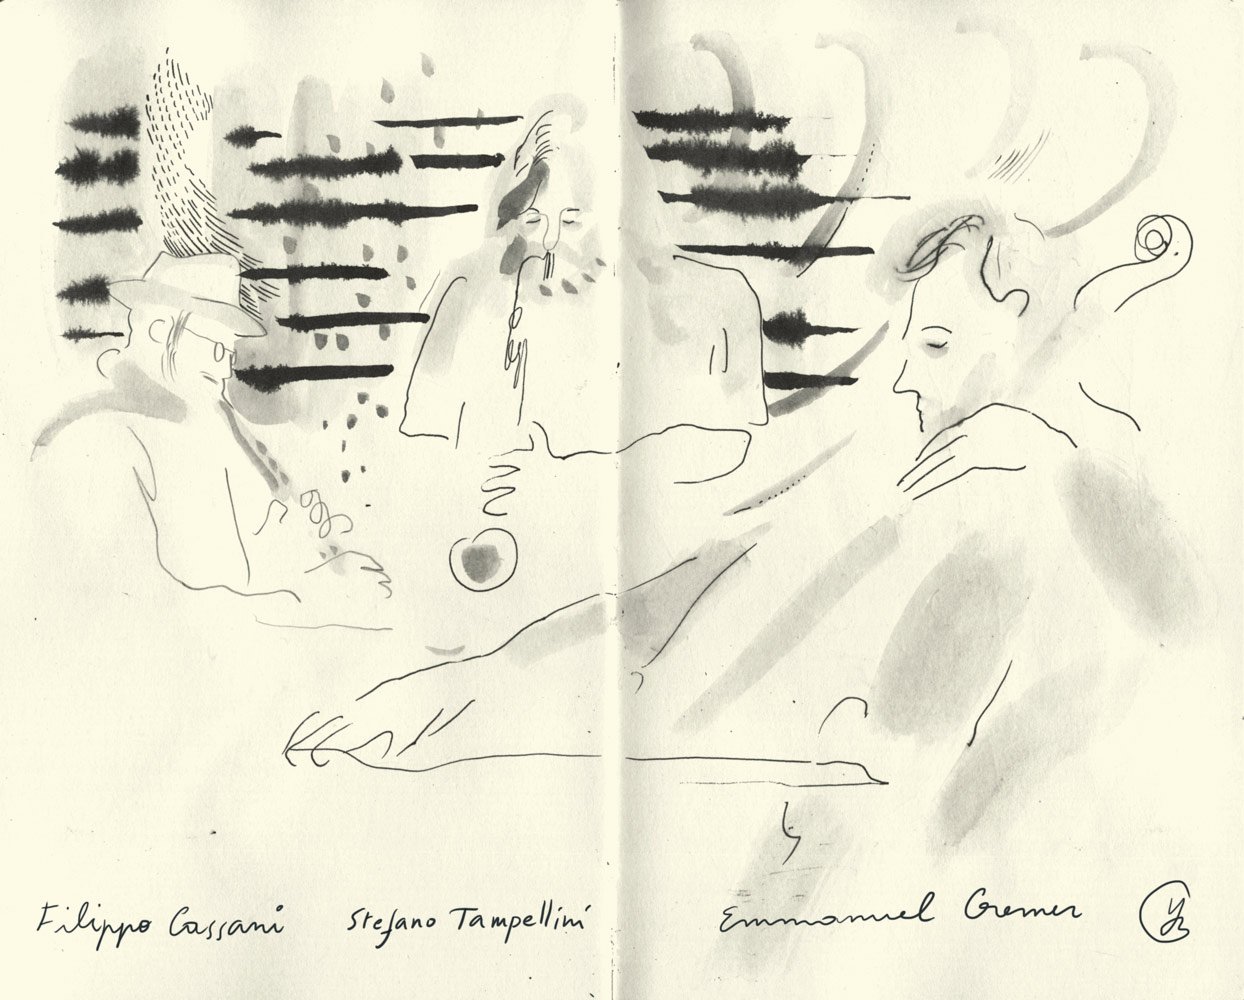 Filippo Cassani Stefano Tampellini Emmanuel Cremer